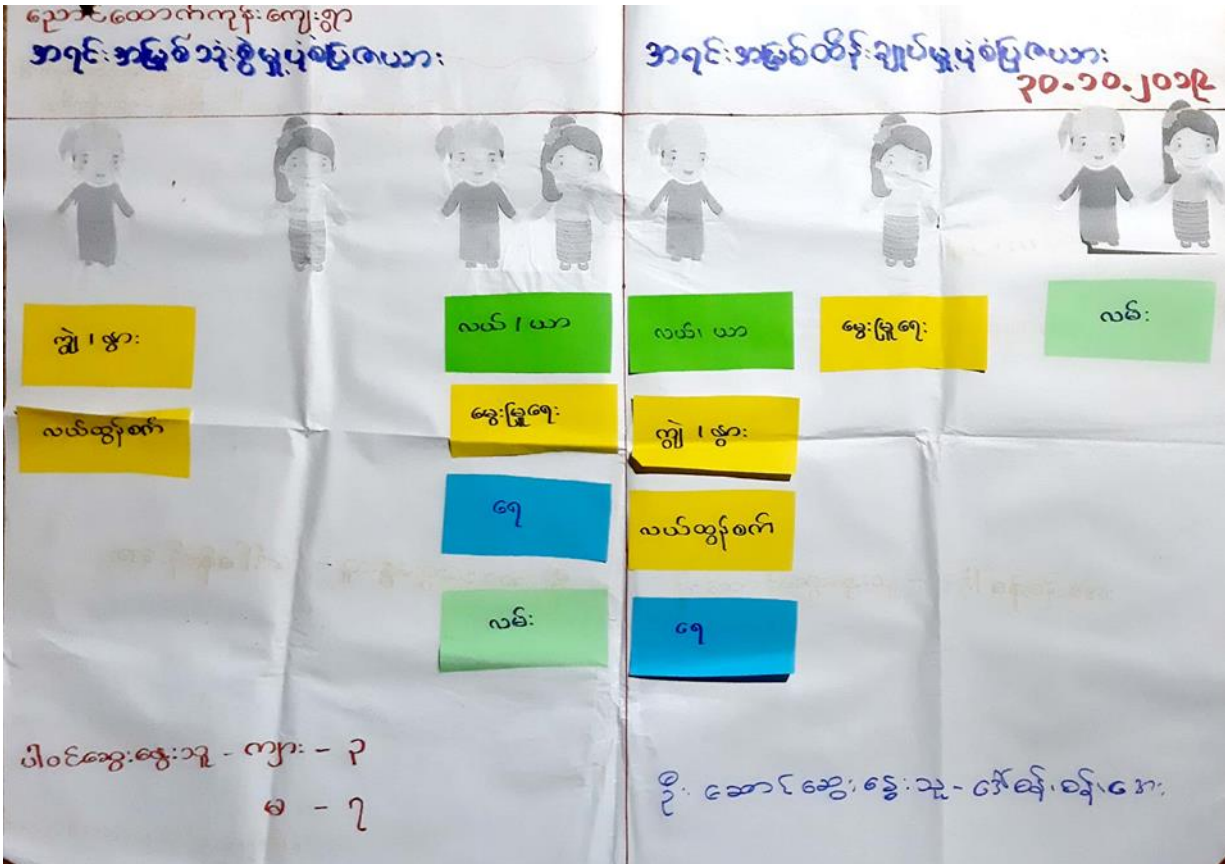 ညောင်ထောက်ကုန်းကျေးရွာ
အရင်းအမြစ်သုံးစွဲမှုပုံစံပြဇယား
အရင်းအမြစ်ထိန်းချုပ်မှုပုံစံပြဇယား
၃၀.၁၀.၂၀၁၉
ကျွဲ၊ နွား
လယ်ထွန်စက်
လယ်၊ ယာ
မွေးမြူရေး
ရေ
လမ်း
လယ်၊ ယာ
ကျွဲ၊ နွား
လယ်ထွန်စက်
ရေ
မွေးမြူရေး
လမ်း
ပါဝင်ဆွေးနွေးသူ - ကျား - ၃
မ - ၇
ဦးဆောင်ဆွေးနွေးသူ - ဒေါ်စန်းစန်းအေး